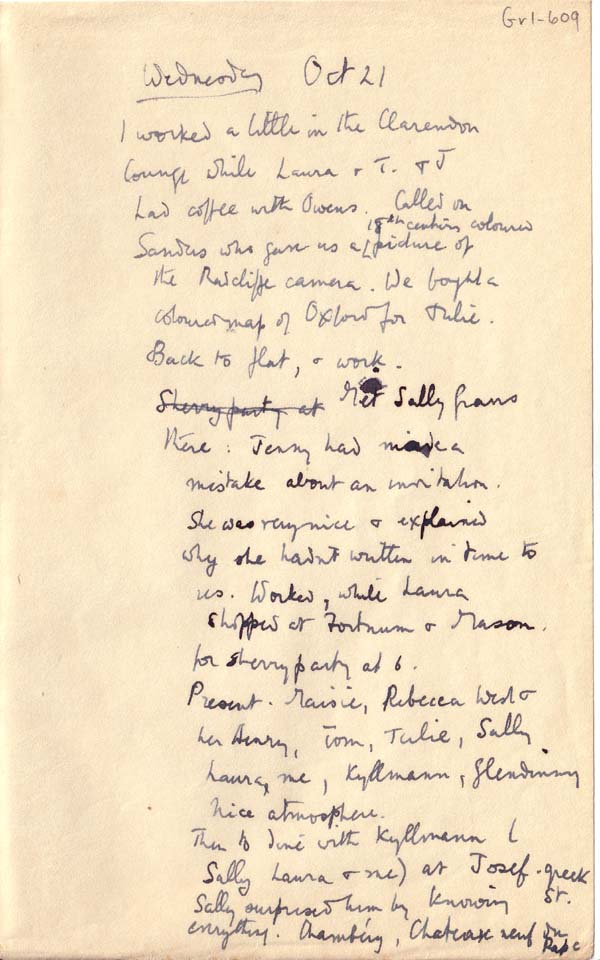 Gr1-609
Wednesday Oct 21
I worked a little in the Clarendon
lounge while Laura & T. & J
had coffee with Owens. Called on
18th century coloured
Sandus who gave us a picture of
the Radcliffe camera. We bought a
coloured map of Oxford for Julie.
Back to flat, & work.
Sherry party at Met Sally Graves
there: Jenny had made a
mistake about an invitation.
She was very nice & explained
why she hadn't written in time to
us. Worked, while Laura
shopped at Fortnum & Mason.
for sherry party at 6.
Present. Maisie, Rebecca West &
her Henry, Tom, Julie, Sally
Laura, me, Kyllmann, Glendinning
Nice atmosphere.
Then to dine with Kyllmann (
Sally Laura & me) at Josef. greek
St.
Sally surprised him by knowing
everything. Chambéry, Chateau neuf du
Pape